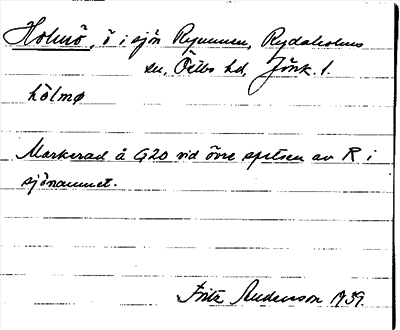 Holmö, ö i sjön Rymmen, Rydaholms
sn, Östbo hd, Jönk. l.
hòlmø
Markerad å G20 vid övre spetsen av R i
sjönamnet.
Fritz Andersson 1939.